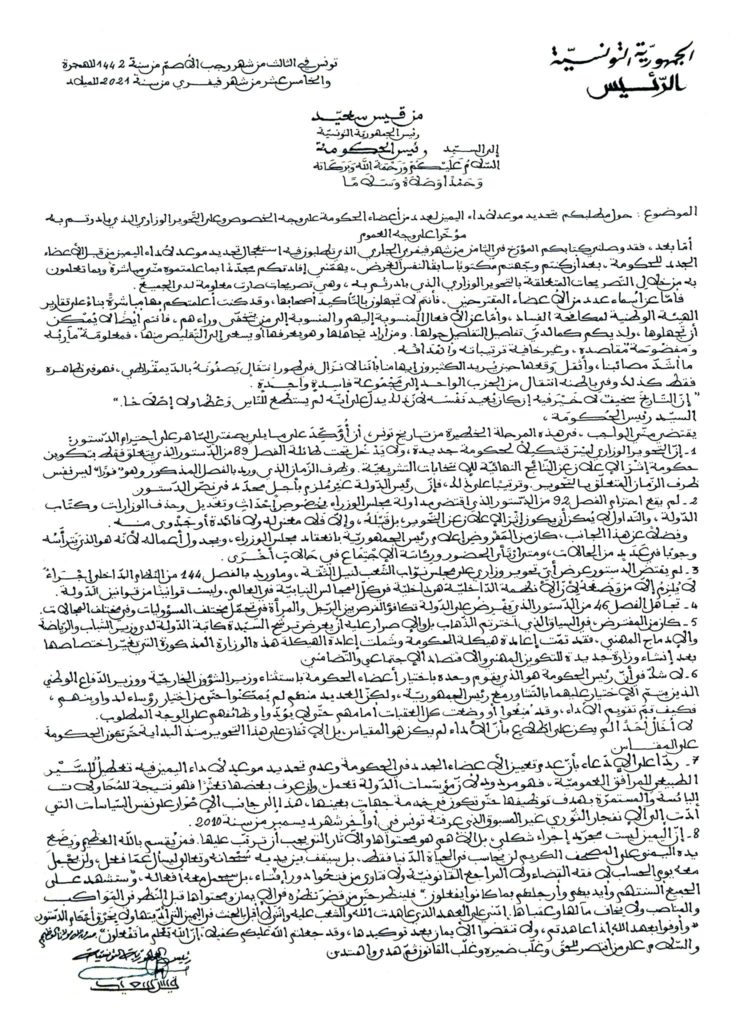 الجمهوريّة التونسيّة
الرّئيس
تونس في الثالث من شهر رجب الأصمّ من سنة 1442 للهجرة
والخامس عشر من شهر فيفري من سنة 2021 للميلاد
من قيس سعيّد
رئيس الجمهورية التونسيّة
إلى السيّد رئيس الحكومة
السّلام عليكم ورحمة الله وبركاته
وحمدا وصلاة وسلاما
الموضوع: حول مطلبكم تحديد موعد لأداء اليمين لعدد من أعضاء الحكومة على وجه الخصوص وعلى التحوير الوزاري الذي بادرتم به
مؤخّرا على وجه العموم
أمّا بعد، فقد وصلني كتابكم المؤرّخ في الثامن من شهر فيفري الجاري الذي تطلبون فيه استعجال تحديد موعد لأداء اليمين من قبل الأعضاء
الجدد للحكومة، بعد أن كنتم وجّهتم مكتوبا سابقا لنفس الغرض، يهمّني إفادتكم مجدّدا بما علمتموه منّي مباشرة وبما تعلمون
به من خلال التصريحات المتعلقة بالتحوير الوزاري الذي بادرتم به، وهي تصريحات صارت معلومة لدى الجميع.
فأمّا عن أسماء عدد من الأعضاء المقترحين، فأنتم لا تجهلون بالتأكيد أصحابها، وقد كنت أعلمتكم بها مباشرة بناء على تقارير
الهيئة الوطنية لمكافحة الفساد، وأمّا عن الأفعال المنسوبة إليهم والمنسوبة إلى من تخفّى وراءهم، فأنتم أيضا لا يمكن
أن تجهلوها، ولديكم كما لديّ تفاصيل التفاصيل حولها. ومن أراد تجاهلها وهو يعرفها أو يسعى إلى التقليص منها، فمعلومة مآربه
ومفضوحة مقاصده، وغير خافية ترتيباته وأهدافه.
ما أشدّ مصائبنا، وأثقل وقعها حين يريد الكثيرون إيهامنا بأننا لا نزال في طور انتقال يصفونه بالديمقراطي، فهو في ظاهره
فقط كذلك وفي باطنه انتقال من الحزب الواحد إلى مجموعة فاسدة واحدة.
"إنّ التاريخ سخيف لا خير فيه إن كان يعيد نفسه لأنّ ذلك يدلّ على أنه لم يستطع للناس وعظا ولا إصلاحا".
السيّد رئيس الحكومة،
يقتضي منّي الواجب، في هذه المرحلة الخطيرة من تاريخ تونس، أن أؤكّد على ما يلي بصفتي السّاهر على احترام الدستور:
1- إنّ التحوير الوزاري ليس تشكيلا لحكومة جديدة، ولا يدخل تحت طائلة الفصل 89 من الدستور الذي يتعلق فقط بتكوين
حكومة إثر الإعلان عن النتائج النهائية للانتخابات التشريعيّة. وظرف الزمان الذي ورد بالفصل المذكور وهو "فورا" ليس نفس
ظرف الزمان المتعلق بالتحوير. وترتيبا على ذلك، فإنّ رئيس الدولة غير ملزم بأجل محدّد في نصّ الدستور.
2- لم يقع احترام الفصل 92 من الدستور الذي اقتضى مداولة مجلس الوزراء بخصوص إحداث وتعديل وحذف الوزارات وكتّاب
الدولة، والتداول لا يمكن أن يكون إثر الإعلان عن التحوير، بل قبله، وإلا فلا معنى له ولا فائدة أو جدوى منه.
وفضلا عن هذا الجانب، كان من المفروض إعلام رئيس الجمهورية بانعقاد مجلس الوزراء، وبجدول أعماله لأنه هو الذي يترأّسه
وجوبا في عديد من الحالات، ومتى ارتأى الحضور ورئاسة الاجتماع في حالات أخرى.
3- لم يقتض الدستور عرض أيّ تحوير وزاري على مجلس نوّاب الشعب لنيل الثقة. وما ورد بالفصل 144 من النظام الداخلي إجراء
لا يلزم إلا من وضعه لأنّ الأنظمة الداخلية هي داخلية في كلّ المجالس النيابية في العالم، وليست قوانينا من قوانين الدولة.
4- تجاهل الفصل 46 من الدستور الذي يفرض على الدولة تكافؤ الفرص بين الرجل والمرأة في تحمّل مختلف المسؤوليات وفي مختلف المجالات.
5- كان من المفترض، في السياق الذي اخترتم الذهاب بل والإصرار عليه أن يعرض ترشح السيّدة كاتبة الدولة لدى وزير الشباب والرياضة
والإدماج المهني، فقد تمّت إعادة هيكلة الحكومة وشملت إعادة الهيكلة هذه الوزارة المذكورة التي تغيّر اختصاصها
بعد إنشاء وزارة جديدة للتكوين المهني والاقتصاد الاجتماعي والتضامني
6- لا شكّ في أنّ رئيس الحكومة هو الذي يقوم وحده باختيار أعضاء الحكومة باستثناء وزير الشؤون الخارجية ووزير الدفاع الوطني
الذين يتمّ الاختيار عليهما بالتشاور مع رئيس الجمهوريّة، ولكنّ العديد منهم لم يُمكّنوا حتّى من اختيار رؤساء لدواوينهم،
فكيف تمّ تقويم الأداء، وقد مُنعوا أو وضعت كلّ العقبات أمامهم حتّى لا يؤدّوا وظائفهم على الوجه المطلوب.
لا أخال أحدا لم يكن على اطّلاع بأنّ الأداء لم يكن هو المقياس، بل الاتفاق على هذا التحوير منذ البداية حتّى تكون الحكومة
على المقاس
7- ردّا على الادّعاء بأنّ عدم تعيين الأعضاء الجدد في الحكومة وعدم تحديد موعد لأداء اليمين فيه تعطيل للسّير
الطبيعي للمرافق العموميّة، فهو مردود لأنّ مؤسّسات الدولة تعمل وإن عرف بعضها تعثّرا فهو نتيجة للمحاولات
اليائسة والمستمرّة بهدف توظيفها حتّى تكون في خدمة جهات بعينها، هذا إلى جانب الإصرار على نفس السياسات التي
أدّت إلى الانفجار الثوري غير المسبوق الذي عرفته تونس في أواخر شهر ديسمبر من سنة 2010.
8- إنّ اليمين ليست مجرّد إجراء شكلي بل الأهم هو محتواها والآثار التي يجب أن تترتّب عليها. فمن يقسم بالله العظيم ويضع
يده اليمنى على المصحف الكريم لن يحاسب في الحياة الدنيا فقط، بل سيقف بين يديه سبحانه وتعالى ليسأل عمّا فعل، ولن يحمل
معه يوم الحساب لا فقه القضاء ولا المراجع القانونية ولا فتاوى من فتحوا دور إفتاء، بل سيحمل معه أفعاله، وستشهد على
الجميع "ألسنتهم وأيديهم وأرجلهم بما كانوا يفعلون" فلينظر حتّى من قصر نظره في الأيمان ومحتواها قبل النظر في المواكب
والمناصب ولا يخاف مآلها وعقباها. إنّني على العهد الذي عاهدت الله والشعب عليه
"وأوفوا بعهد الله إذا عاهدتم، ولا تنقضوا الأيمان بعد توكيدها، وقد جعلتم الله عليكم كفيلا، إنّ الله يعلم ما تفعلون" صدق الله العظيم
والسّلام على من انتصر للحقّ وغلّب ضميره وغلّب القانون ثمّ هدى واهتدى
رئيس الجمهورية التونسيّة
قيس سعيّد